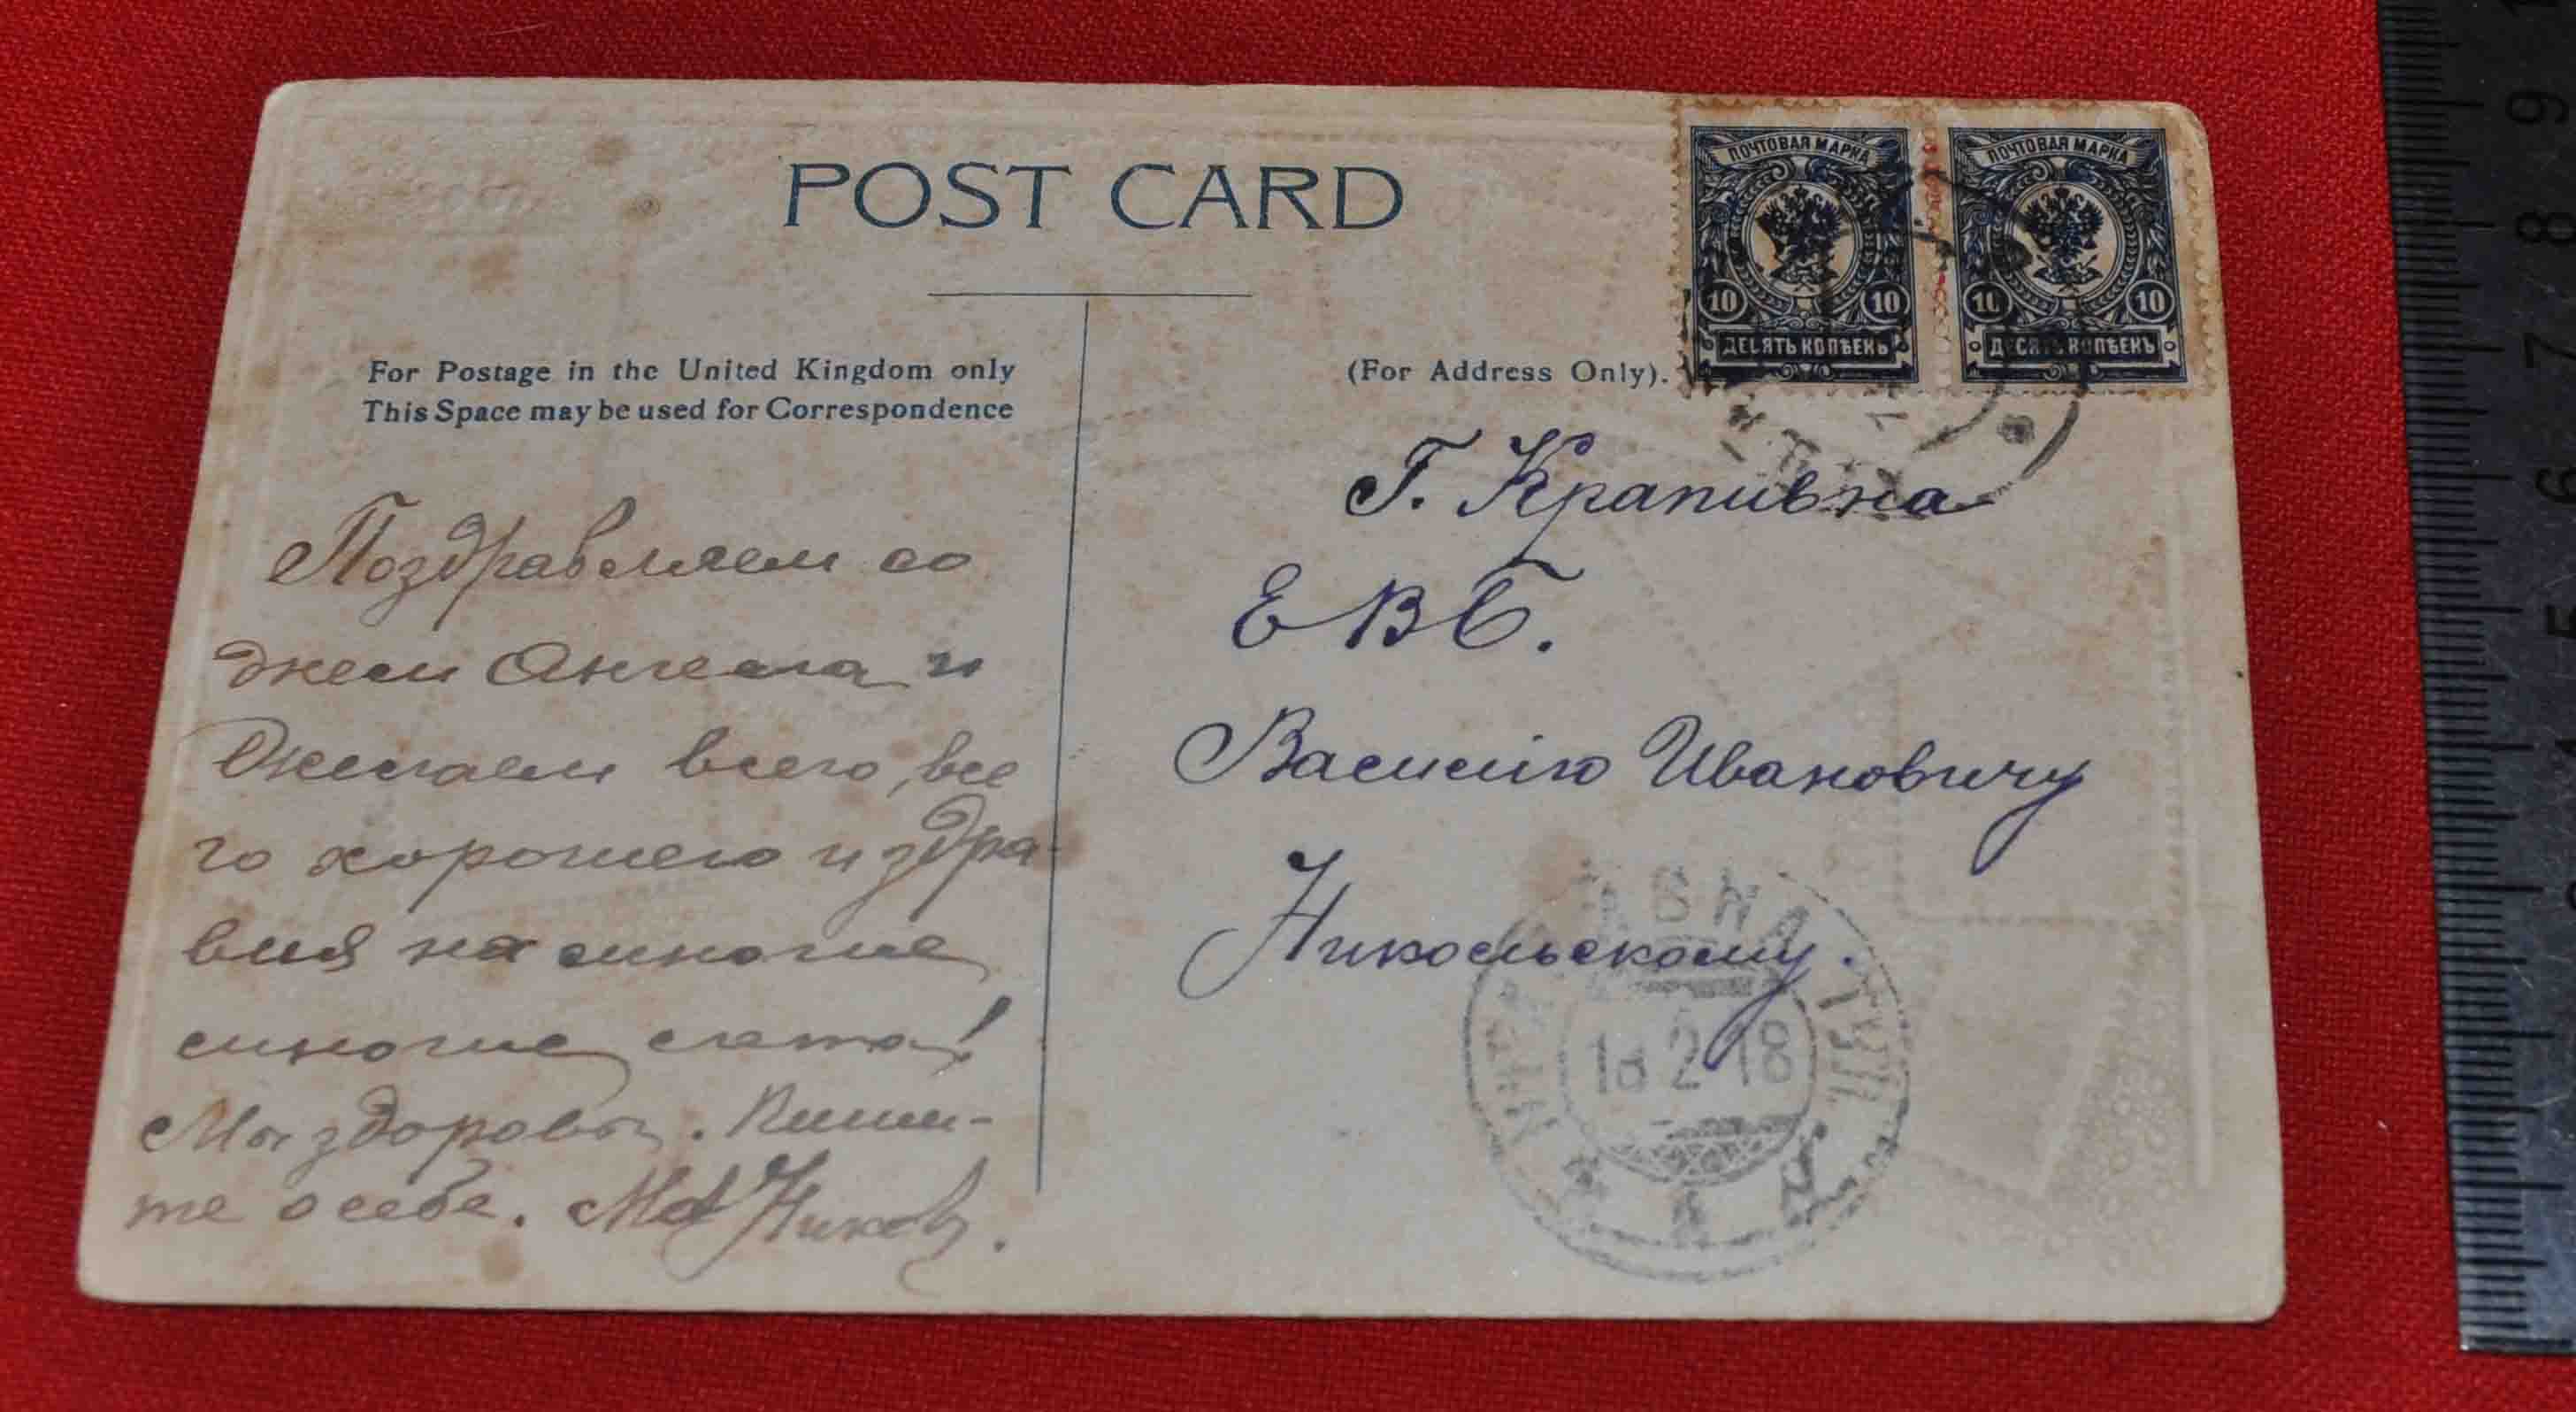 POST CARD
For Postage in the United Kingdom only
This Space may be used for Correspondence
(For Address Only).
ПОЧТОВАЯ МАРКА
10 10
ДЕСЯТЬ КОПѢЕКЪ
ПОЧТОВАЯ МАРКА
10 10
ДЕСЯТЬ КОПѢЕКЪ
Поздравляем со
днем Ангела и
Желаем всего, все
го хорошего и здра-
вия на многие
многие лета!
Мы здоровы. Пиши-
те о себе.
Г. Крапивна
ЕВБ.
Василию Ивановичу
Никольскому.
2 18
9
8
7
6
5